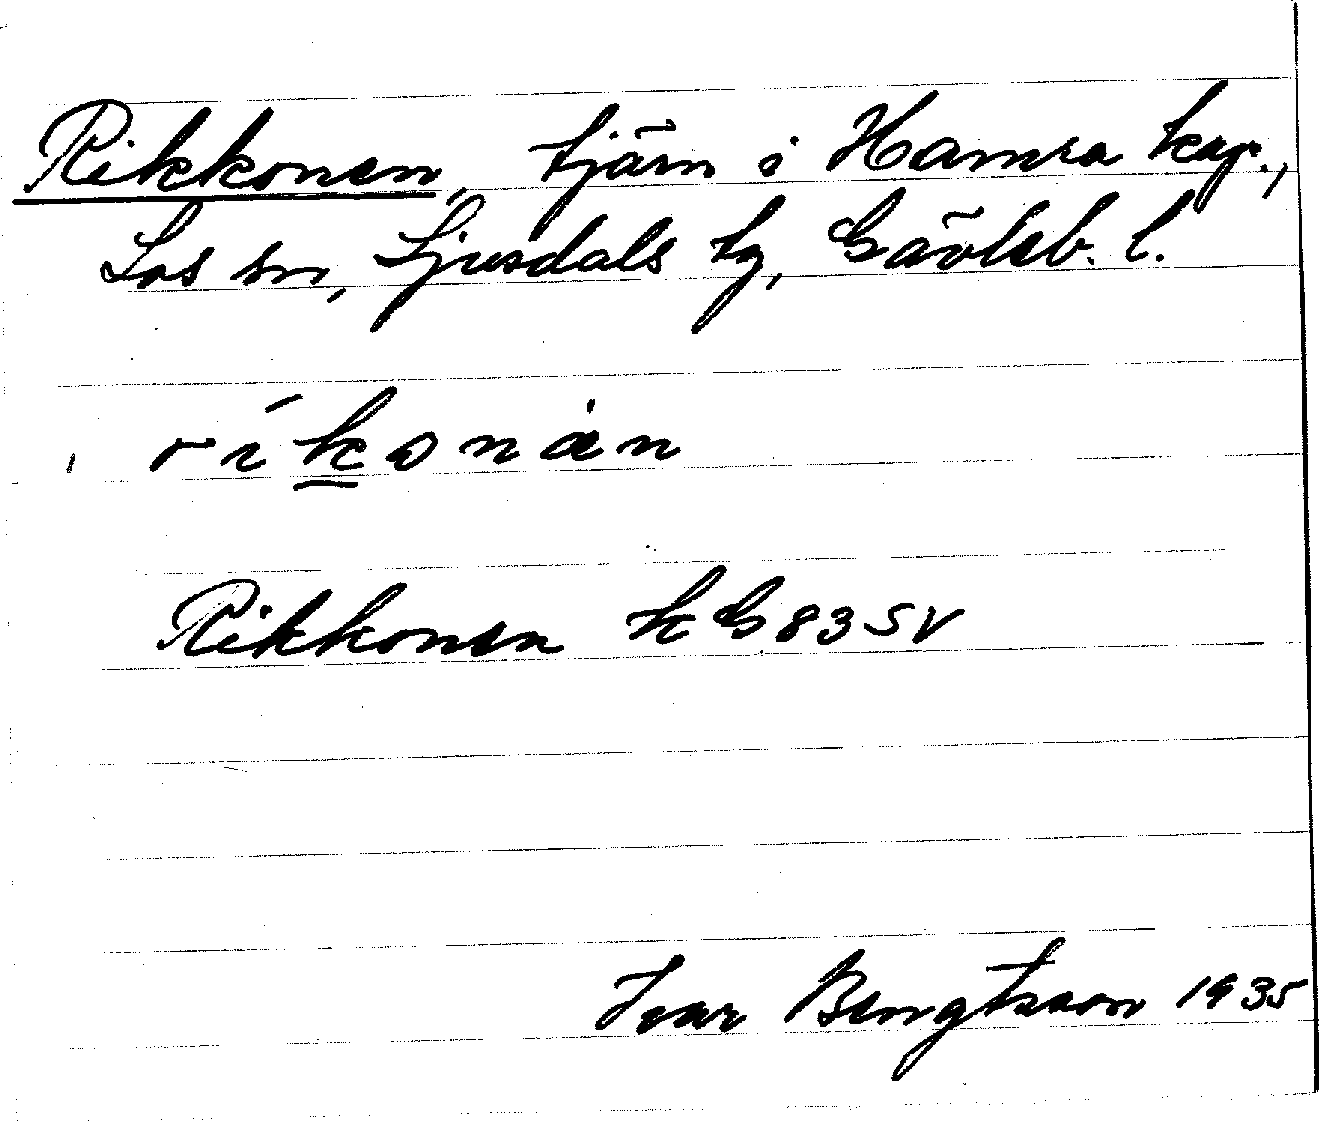 Rikkonen, tjärn i Hamra kap.,
Los sn, Ljusdals tg, Gävleb. l.
ríkonȧn
Rikkonen k G 83 SV
Ivar Bengtsson 1935